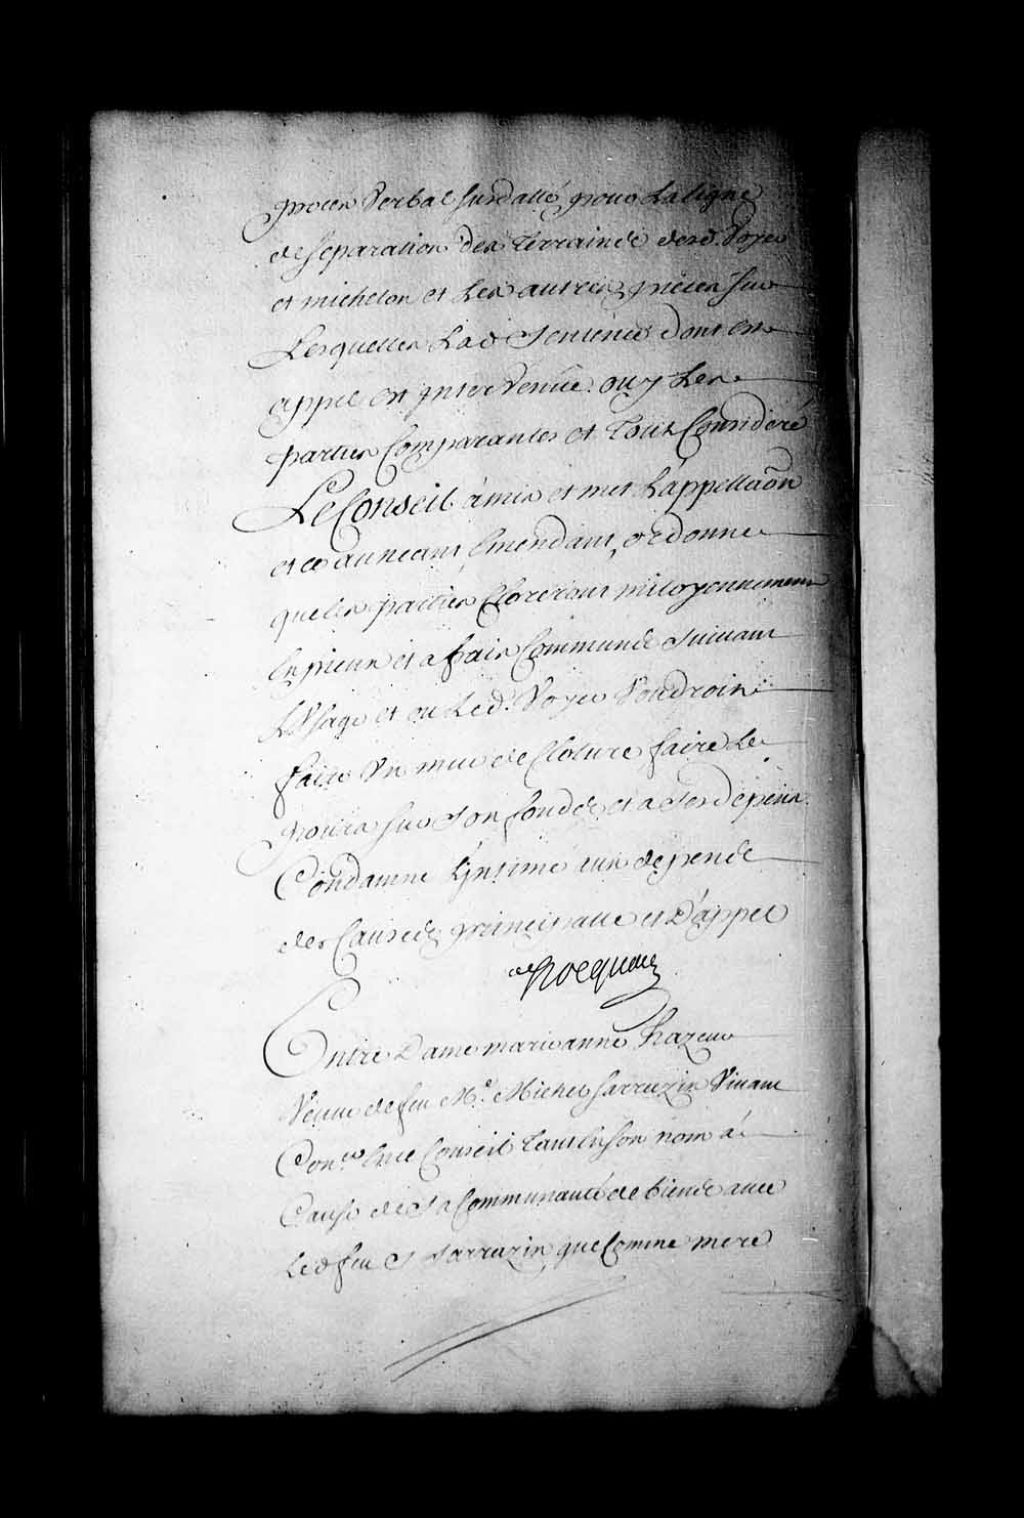 procès verbal susdatté, pour la ligne
de separation des terrains desd. Voyer
et micheton et les autres pieces sur
Lesquelles Lad Sentence dont est
appel est intervenüe. ouy Les
parties Comparantes et tout Consideré
Le Conseil à mis et met L'appellaõn
et ce au neant, Emendant, ordonne
que les parties Cloreront mitoyennement
En pieux et a frais Communs Suivant
L'Usage et ou Led. Voyer Voudroit
faire Un mur de Cloture faire Le
poura sur Son fonds et a ses depens
Condamne L'intimé aux depens
des Causes principalle et D'appel
Hocquart
Entre Dame marie anne hazeur
Veuve de feu Mr. Michel Sarrazin Vivant
Coner. En ce Conseil tant En son nom à
Cause de Sa Communauté de biens avec
Led feu S Sarrazin que Comme mere